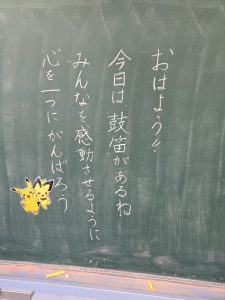 おはよう!!
今日は、鼓笛があるね
みんなを感動させるように
心を一つにがんばろう